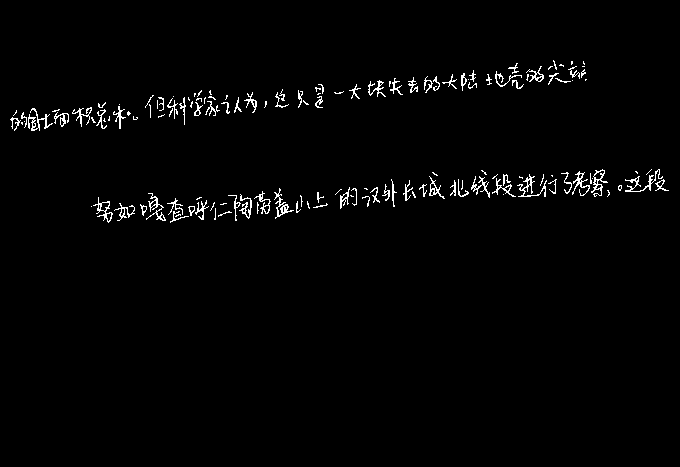 的国土面积总和。但科学家认为，这只是一大块失去的大陆地壳的尖端
努如嘎查呼仁陶勒盖山上的汉外长城北线段进行了考察。这段